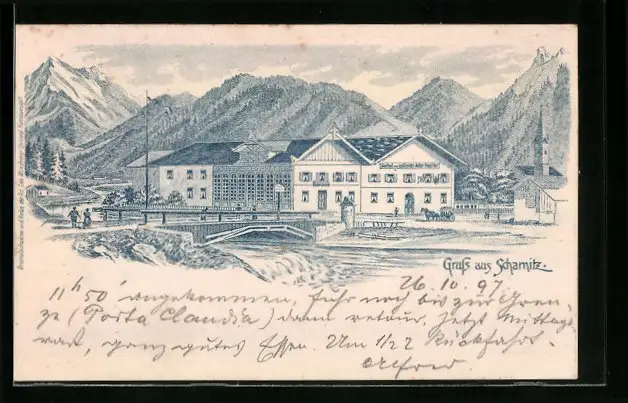 Gruß aus Scharnitz.
26.10.97
11h50' angekommen, fuhr noch bis zur Gren-
ze (Porta Claudia) dann retour, jetzt Mittags-
rast, ganz gutes Essen. Um 1/2 2 Rückfahrt.
Alfred